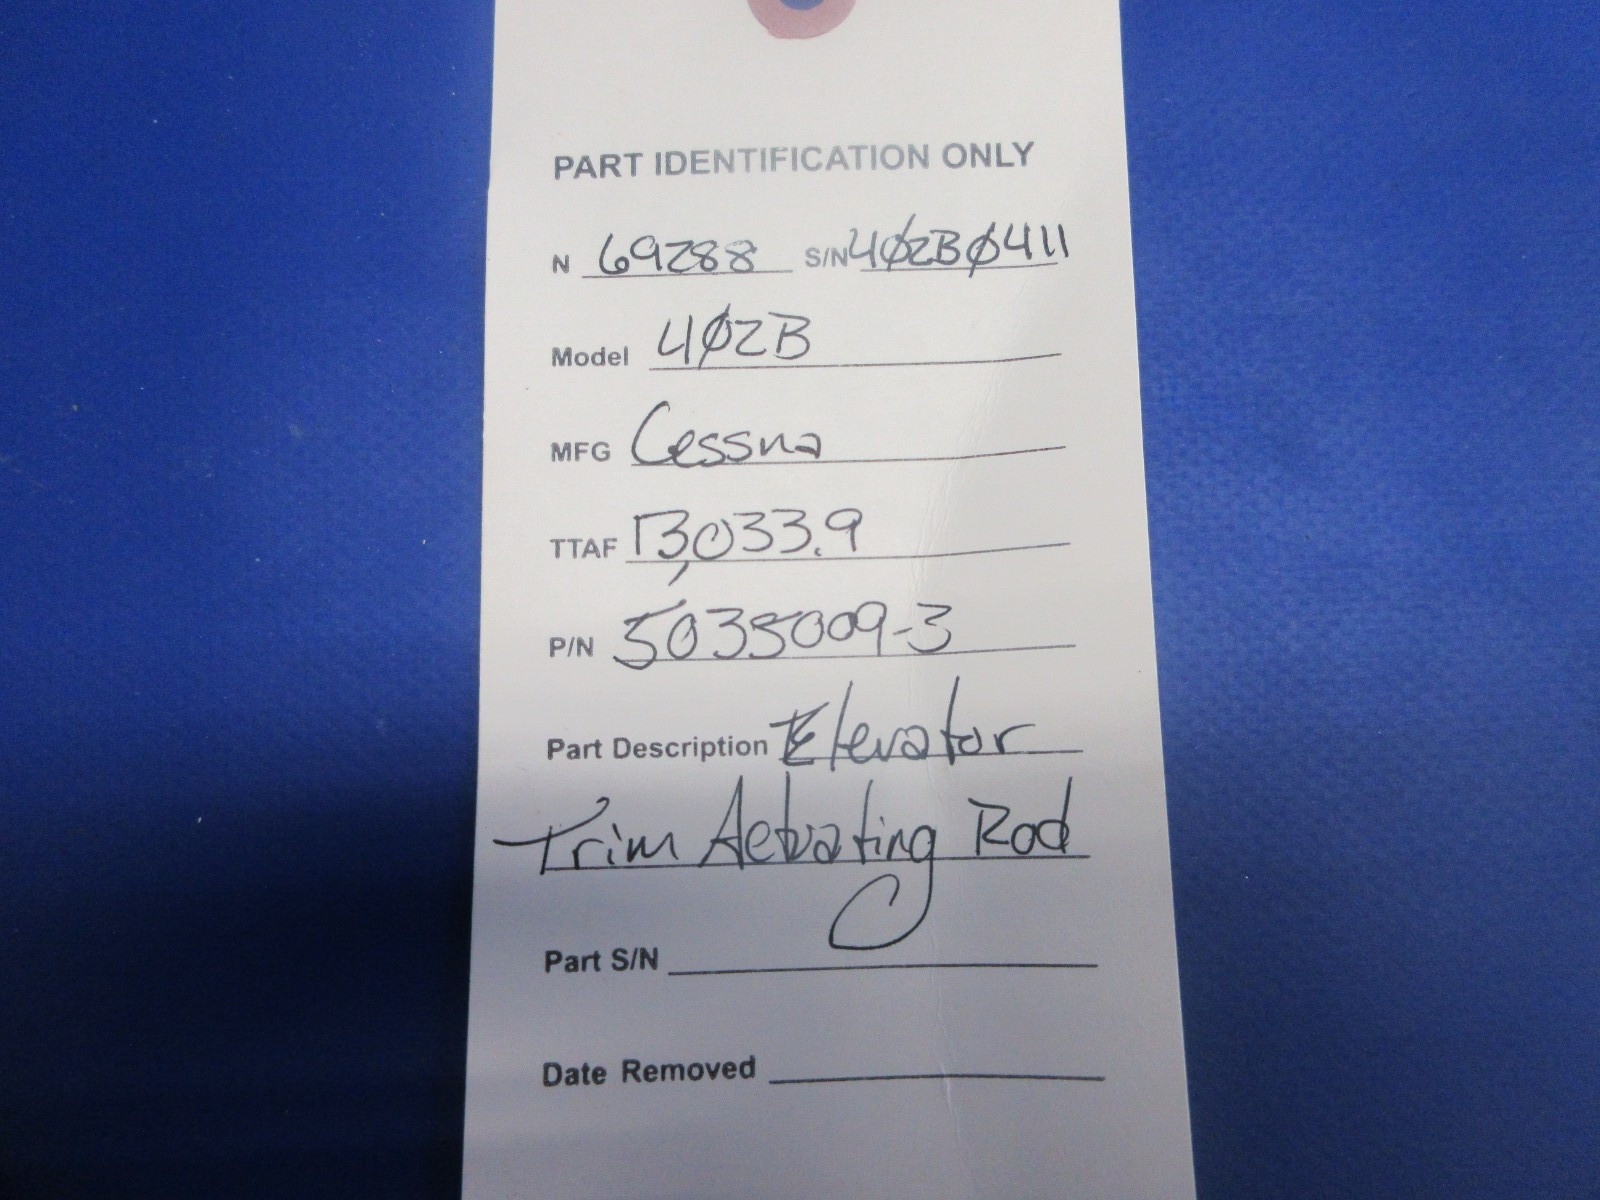 PART IDENTIFICATION ONLY
N 69288 S/N 4Ø2BØ411
Model 4Ø2B
MFG Cessna
TTAF 13,033.9
P/N 5035009-3
Part Description Elevator
Trim Actuating Rod
Part S/N
Date Removed